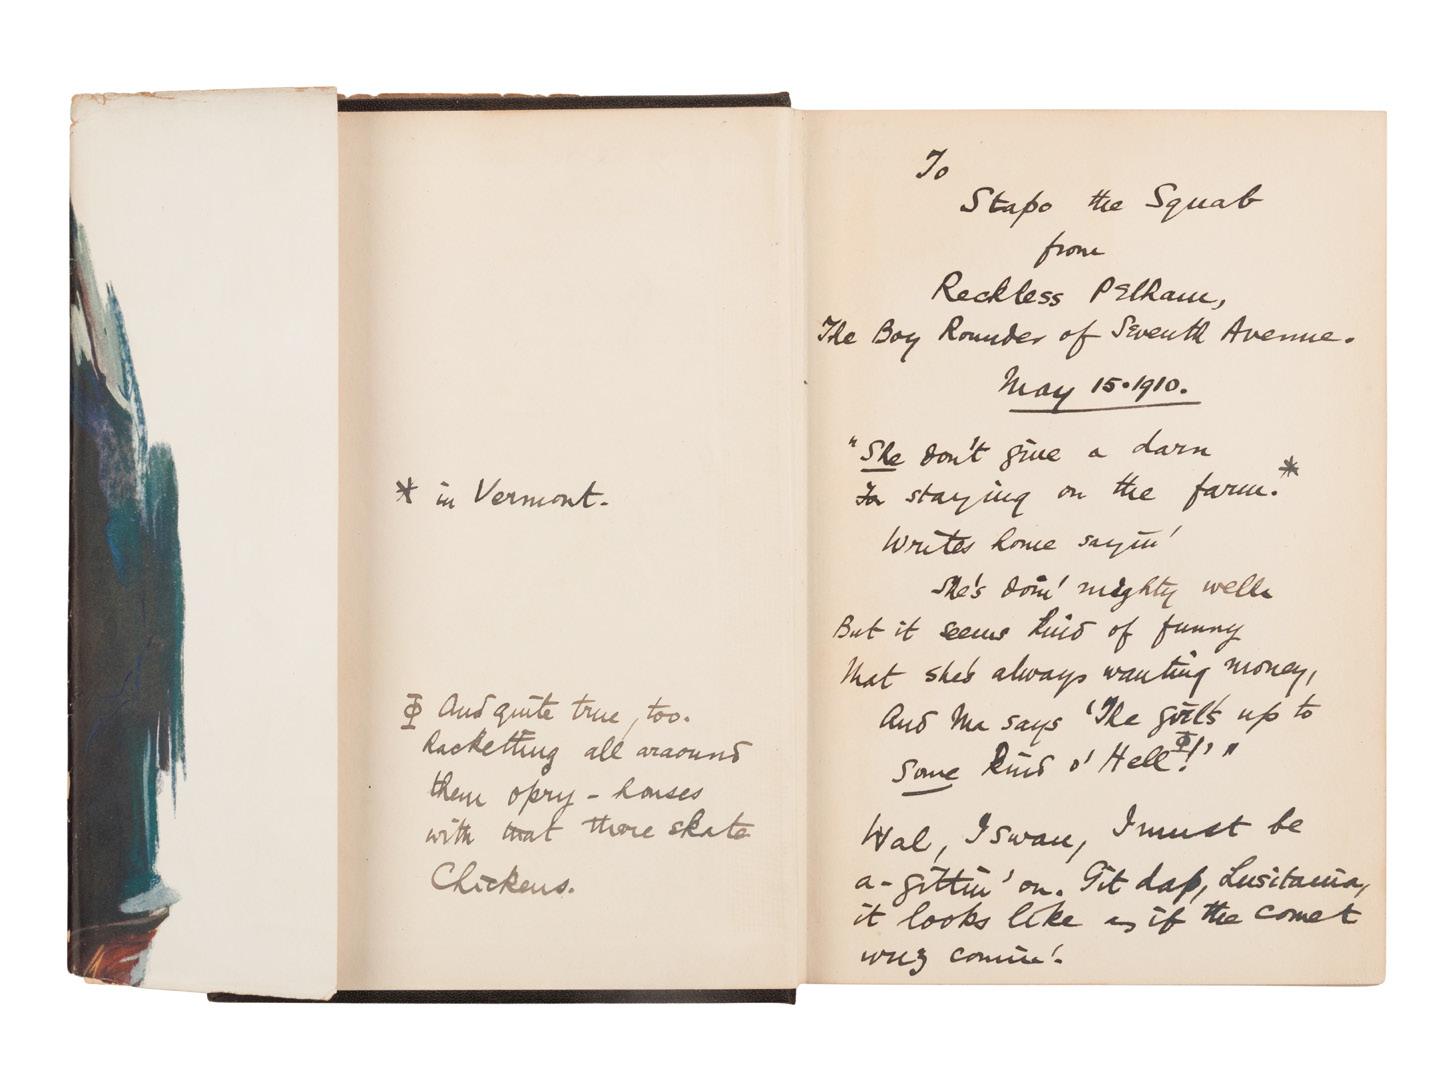 * in Vermont.
Φ And quite true, too.
Racketting all araound
them opry-houses
with that there skate
Chickens.
To
Stapo the Squab
from
Reckless Pelham,
The Boy Rounder of Seventh Avenue.
May 15·1910.
"She don't give a darn
For staying on the farm.*
Writes home sayin'
She's doin' mighty well
But it seems kind of funny
That she's always wanting money,
And Ma says 'The girl's up to
some kind o' HellΦ!'"
Wal, I swan, I must be
a-gittin' on. Git dap, Lusitania,
it looks like as if the comet
wuz comin'.